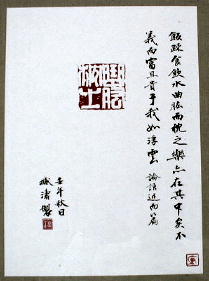 飯疏食飲水曲肱而枕之樂亦在其中矣不
義而富且貴于我如浮雲 論語述而篇
壬午秋日